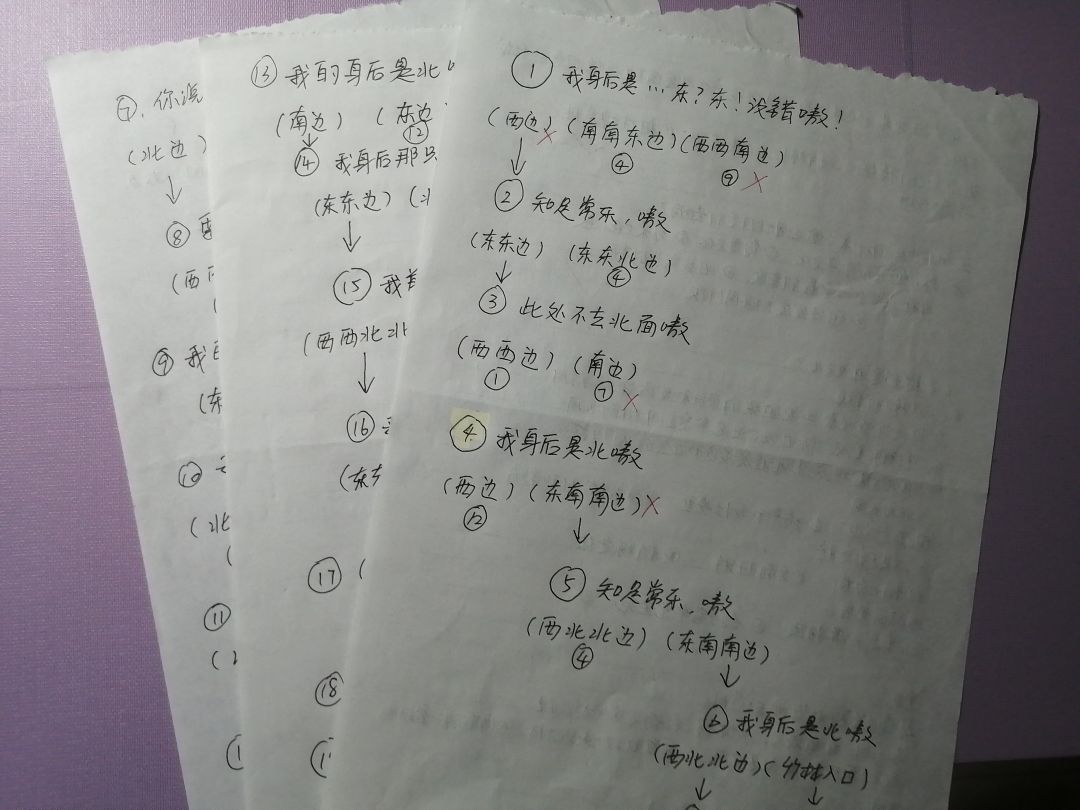 ① 我身后是…东?东!没错嗷!
(西边)× (南南东边)(西西南边)
④ ⑨ ×
② 知足常乐,嗷
(东东边) (东东北边)
④
③ 此处不去北面嗷
(西西边) (南边)
① ⑦ ×
④ 我身后是北嗷
(西边) (东南南边)×
⑫
⑤ 知足常乐,嗷
(西北北边) (东南南边)
④
⑥ 我身后是北嗷
(西北北边)(竹林入口)
⑬ 我的身后是北
(南边) (东边
⑫
⑭ 我身后那只
(东东边)
⑮ 我
(西西北北
⑯
(东东
⑰
⑱
⑦. 你说
(北边)
⑧
(西
⑨ 我
(东
⑩
(北
⑪